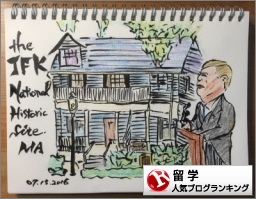 the
JFK
National
Historic
Site
MA
07.13.2016
留学
人気ブログランキング